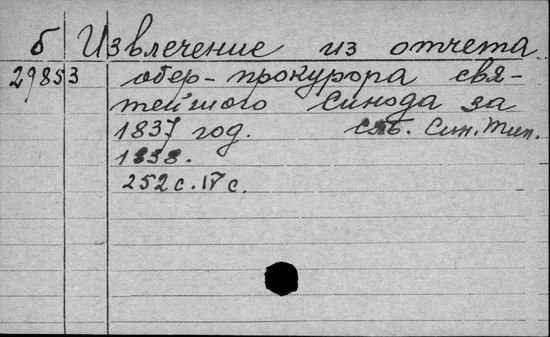 б Извлечение из отчета
29853 обер-прокурора свя-
тейшого Синода за
1837 год. Спб. Син. Тип.
1838.
252 с. IV с.